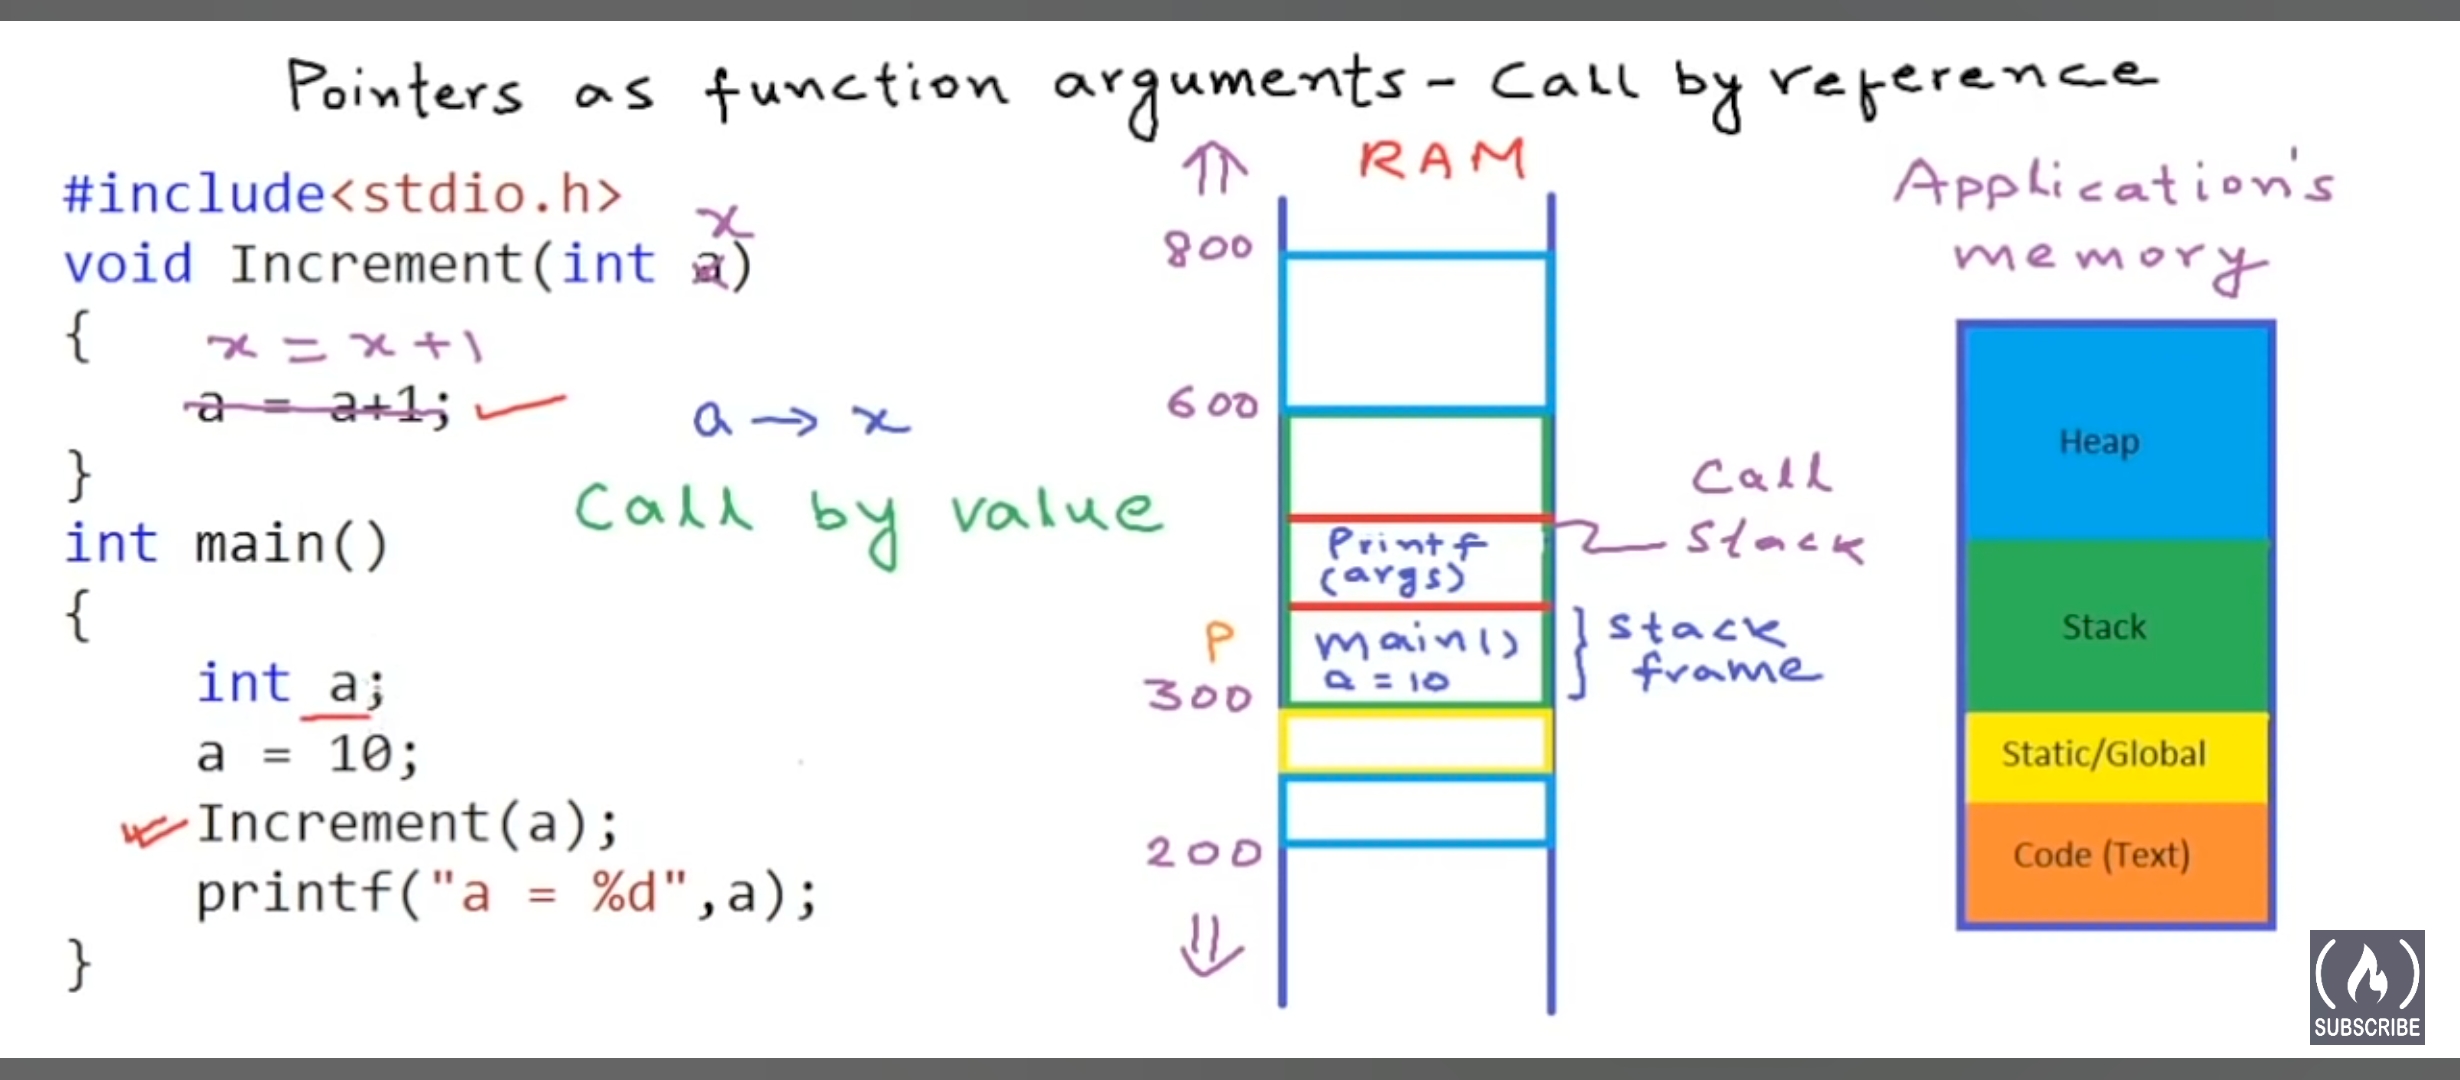 Pointers as function arguments - Call by reference
#include<stdio.h>
x
void Increment(int a)
{
x = x+1
a = a+1;
}
a → x
Call by value
int main()
{
int a;
a = 10;
Increment(a);
printf("a = %d",a);
}
RAM
800
600
P
300
200
Printf
(args)
main()
a = 10
Call
stack
stack
frame
Application's
memory
Heap
Stack
Static/Global
Code (Text)
SUBSCRIBE